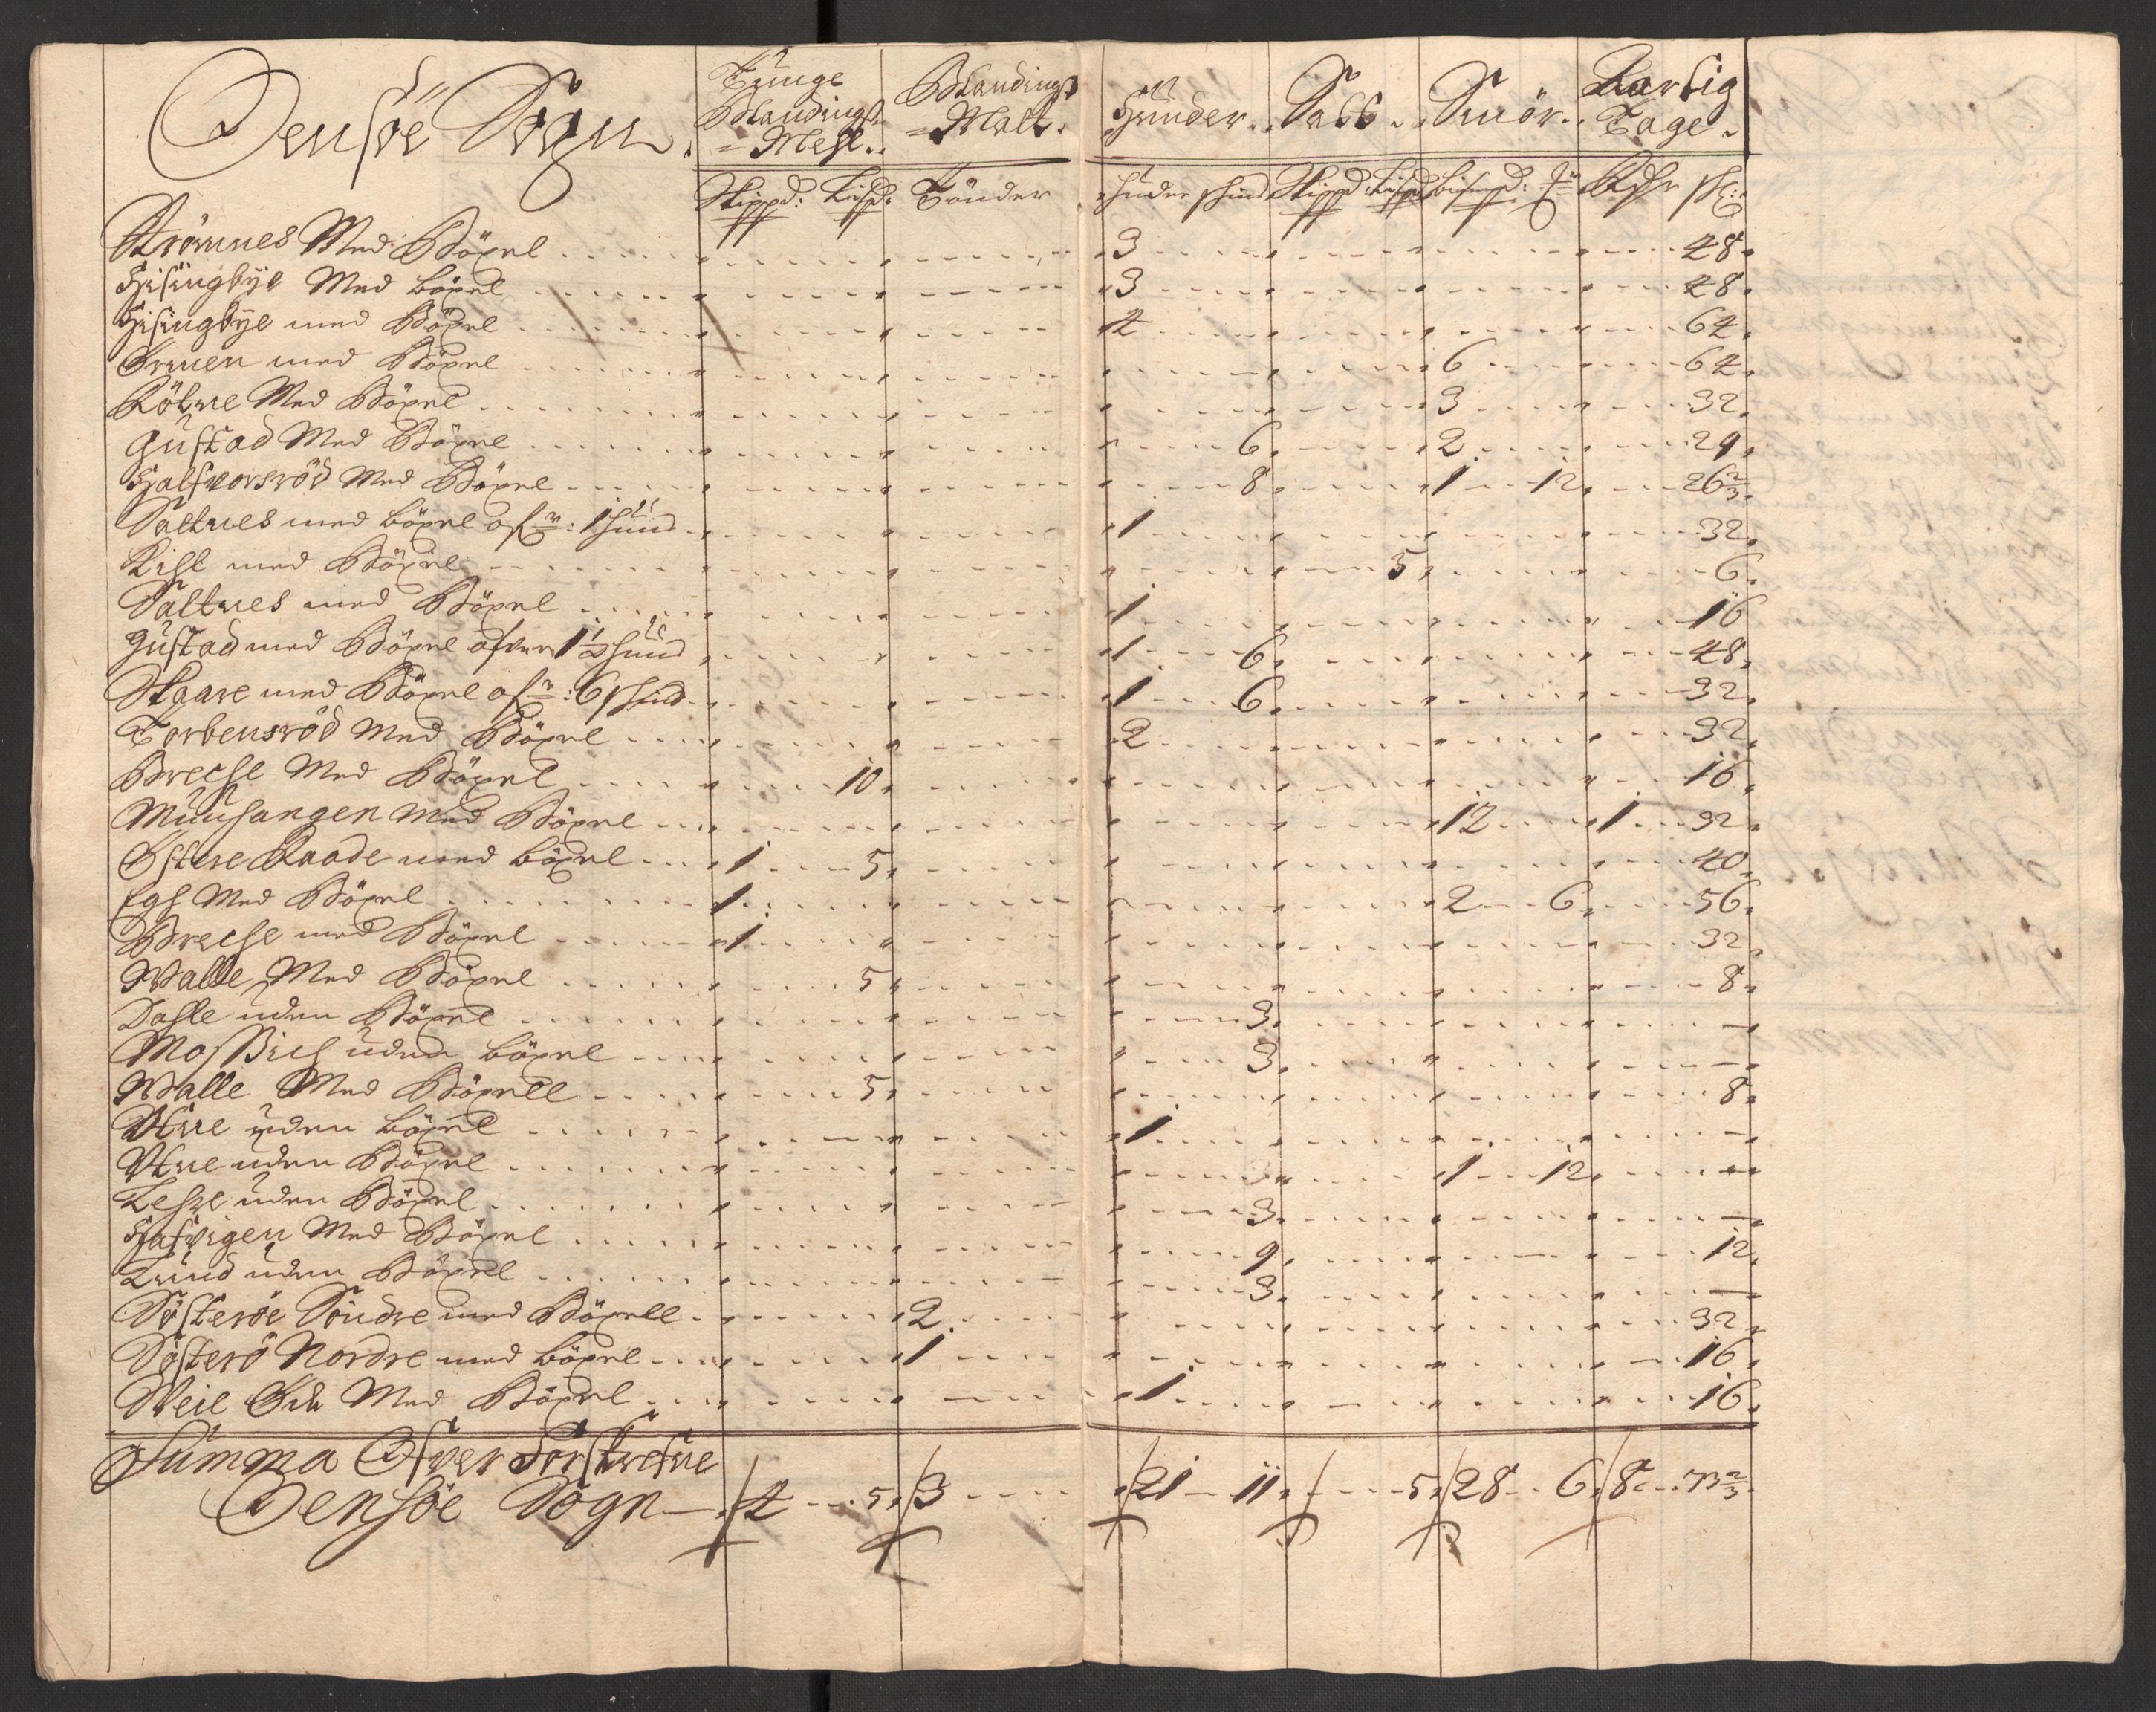 Oensöe Sogn.
Tunge Blandings Mehl. Blandings Malt. Huuder. Salt. Smör. Aarlig Tage.
Skippd: Lispd: Tönder huder skind Skippd: Lispd bismpd: Rdr
Strömnes Med Böxel 3 48
Hisingbye Med böxel 3 48
Hisingbye med Böxel 4 64
med Böxel 6 64
Kötne Med Böxel 3 32
Gustad Med Böxel 6 2 29
Halfvorsröd Med Böxel 8 1 12 26 2/3
Saltnes med böxel ofr: 1 huud 1 32
med Böxel 5 6
Saltnes med Böxel 1 16
Gustad med Böxel ofver 1 1/2 huud 1 6 48
Skaare med Böxel ofr: 6 skind 1 6 32
Torbensröd Med Böxel 2 32
Breche Med Böxel 10 16
Muusangen Med Böxel 12 1 32
Östere Raade med böxel 1 5 40
Egh Med Böxel 1 2 6 56
Breche med Böxel 1 32
Walle Med Böxel 5 8
Dahle uden Böxel 3
Mossvich uden böxel 3
Walle Med Böxell 5 8
Utne uden böxel 1
Utne uden Böxel 1 12
uden Böxel 3
Hafvigen Med Böxel 9 12
Lund uden Böxel 3
Dösteröe Söndre med Böxell 2 32
Dösterö Nordre med böxel 1 16
Med Böxel 1 16
Summa Ofver forskrefne
Oensöe Sogn 4 5 3 21 11 5 28 6 8 73 2/3